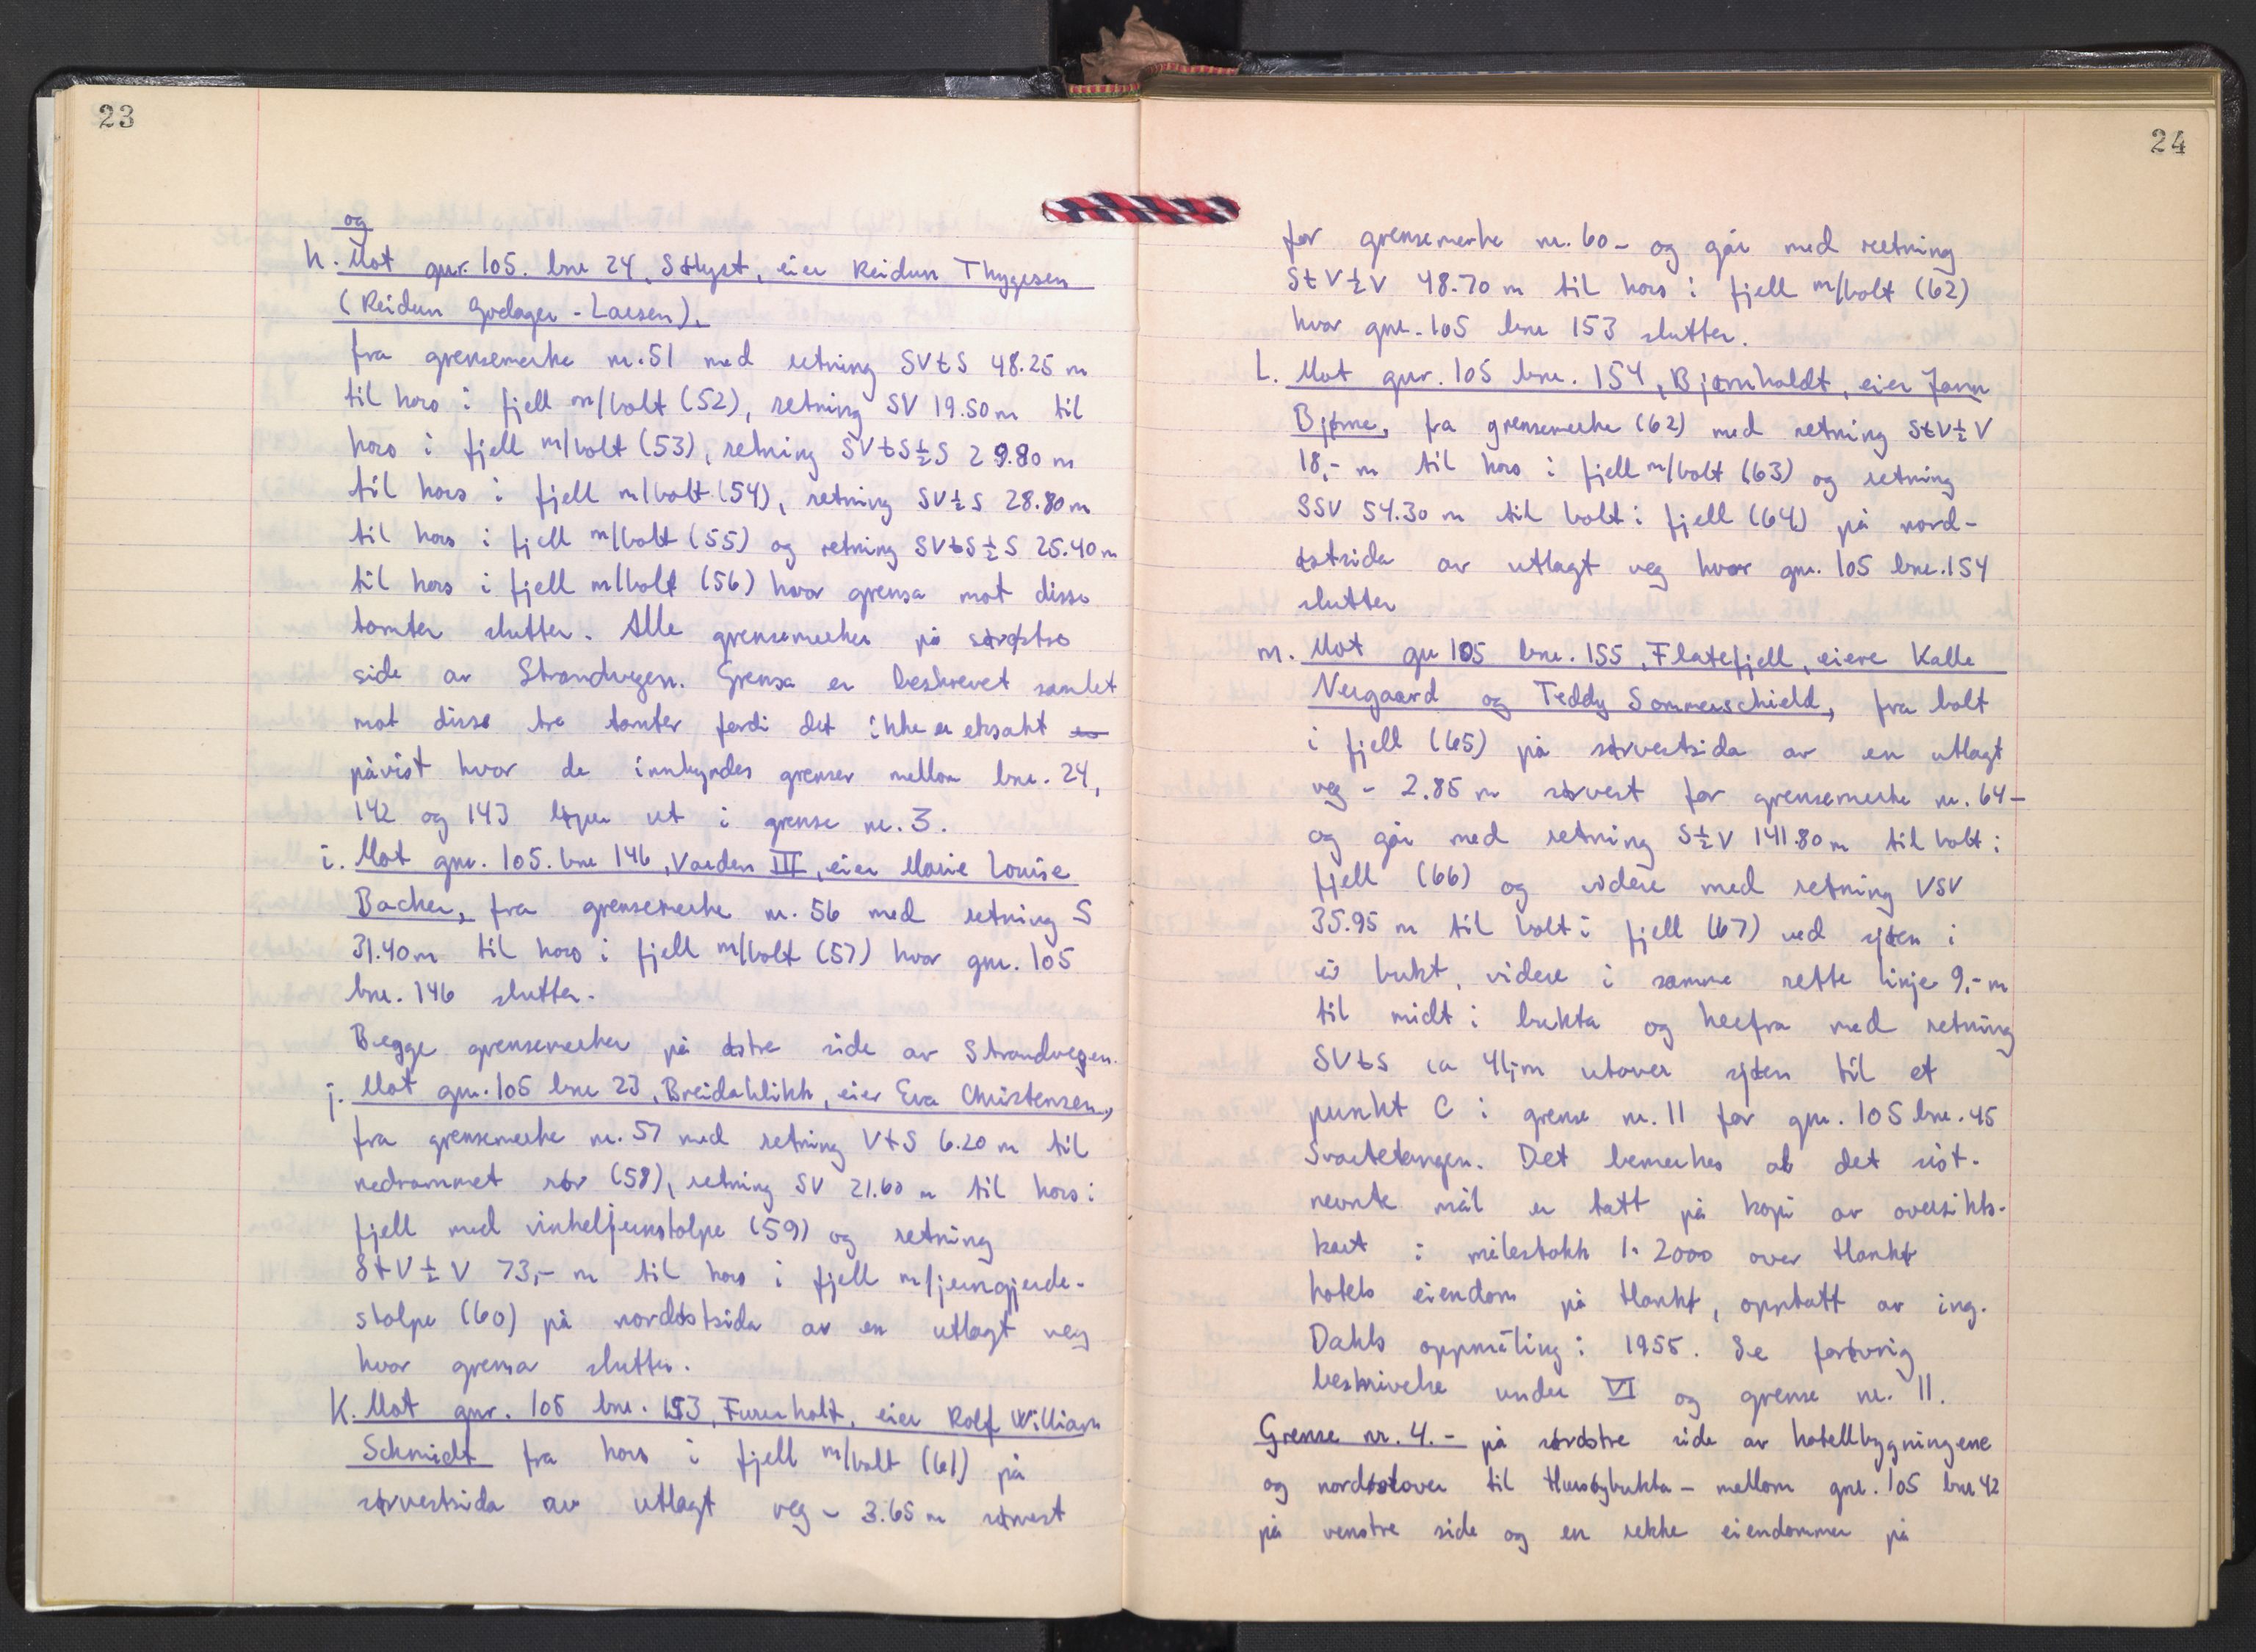 23
og
h. Mot gnr. 105. bnr 24, Sölyst, eier Reidun Thygesen
(Reidun Godager-Larsen).
fra grensemerke nr. 51 med retning SVtS 48.25 m
til kors i fjell m/bolt (52), retning SV 19.50 m til
kors i fjell m/bolt (53), retning SVtS½S 29.80 m
til kors i fjell m/bolt (54), retning SV½S 28.80 m
til kors i fjell m/bolt (55) og retning SVtS½S 25.40 m
til kors i fjell m/bolt (56) hvor grensa mot disse
tomter slutter. Alle grensemerker på sørøstre
side av Strandvegen. Grensa er beskrevet samlet
mot disse tre tomter fordi det ikke er eksakt er
påvist hvor de innbyrdes grenser mellom bnr. 24,
142 og 143 løper ut i grense nr. 3.
i. Mot gnr. 105. bnr 146, Varden III, eier Marie Louise
Bacher, fra grensemerke nr. 56 med retning S
31.40 m til kors i fjell m/bolt (57) hvor gnr. 105
bnr. 146 slutter.
Begge grensemerker på østre side av Strandvegen.
j. Mot gnr. 105 bnr 23, Breidablikk, eier Eva Christensen,
fra grensemerke nr. 57 med retning VtS 6.20 m til
nedrammet rør (58), retning SV 21.60 m til kors i
fjell med vinkeljernstolpe (59) og retning
StV½V 73,- m til kors i fjell m/jerngjerde-
stolpe (60) på nordøstsida av en utlagt veg
hvor grensa slutter.
K. Mot gnr. 105 bnr. 153, Furuholt, eier Rolf William
Schmidt fra kors i fjell m/bolt (61) på
sørvestsida av utlagt veg - 3.65 m sørvest
24
for grensemerke nr. 60 - og går med retning
StV½V 48.70 m til kors i fjell m/bolt (62)
hvor gnr. 105 bnr 153 slutter.
L. Mot gnr. 105 bnr. 154, Bjørnholdt, eier Jonn
Bjørne, fra grensemerke (62) med retning StV½V
18,- m til kors i fjell m/bolt (63) og retning
SSV 54.30 m til bolt i fjell (64) på nord-
østsida av utlagt veg hvor gnr. 105 bnr. 154
slutter
m. Mot gnr 105 bnr. 155, Flatefjell, eiere Kalle
Nergaard og Teddy Sommerschield, fra bolt
i fjell (65) på sørvestsida av en utlagt
veg - 2.85 m sørvest for grensemerke nr. 64 -
og går med retning S½V 141.80 m til bolt i
fjell (66) og videre med retning VSV
35.95 m til bolt i fjell (67) ved sjøen i
ei bukt, videre i samme rette linje 9,- m
til midt i bukta og herfra med retning
SVtS ca 41,- m utover sjøen til et
punkt C i grense nr. 11 for gnr. 105 bnr. 45
Svartetangen. Det bemerkes at det sist-
nevnte mål er tatt på kopi av oversikts-
kart i målestokk 1:2000 over Hankø
hotels eiendom på Hankø, opptatt av ing.
Dahls oppmåling i 1955. Se forøvrig
beskrivelse under VI og grense nr. 11.
Grense nr. 4. - på sørøstre side av hotellbygningene
og nordøstover til Hursøybukta - mellom gnr. 105 bnr 42
på venstre side og en rekke eiendommer på